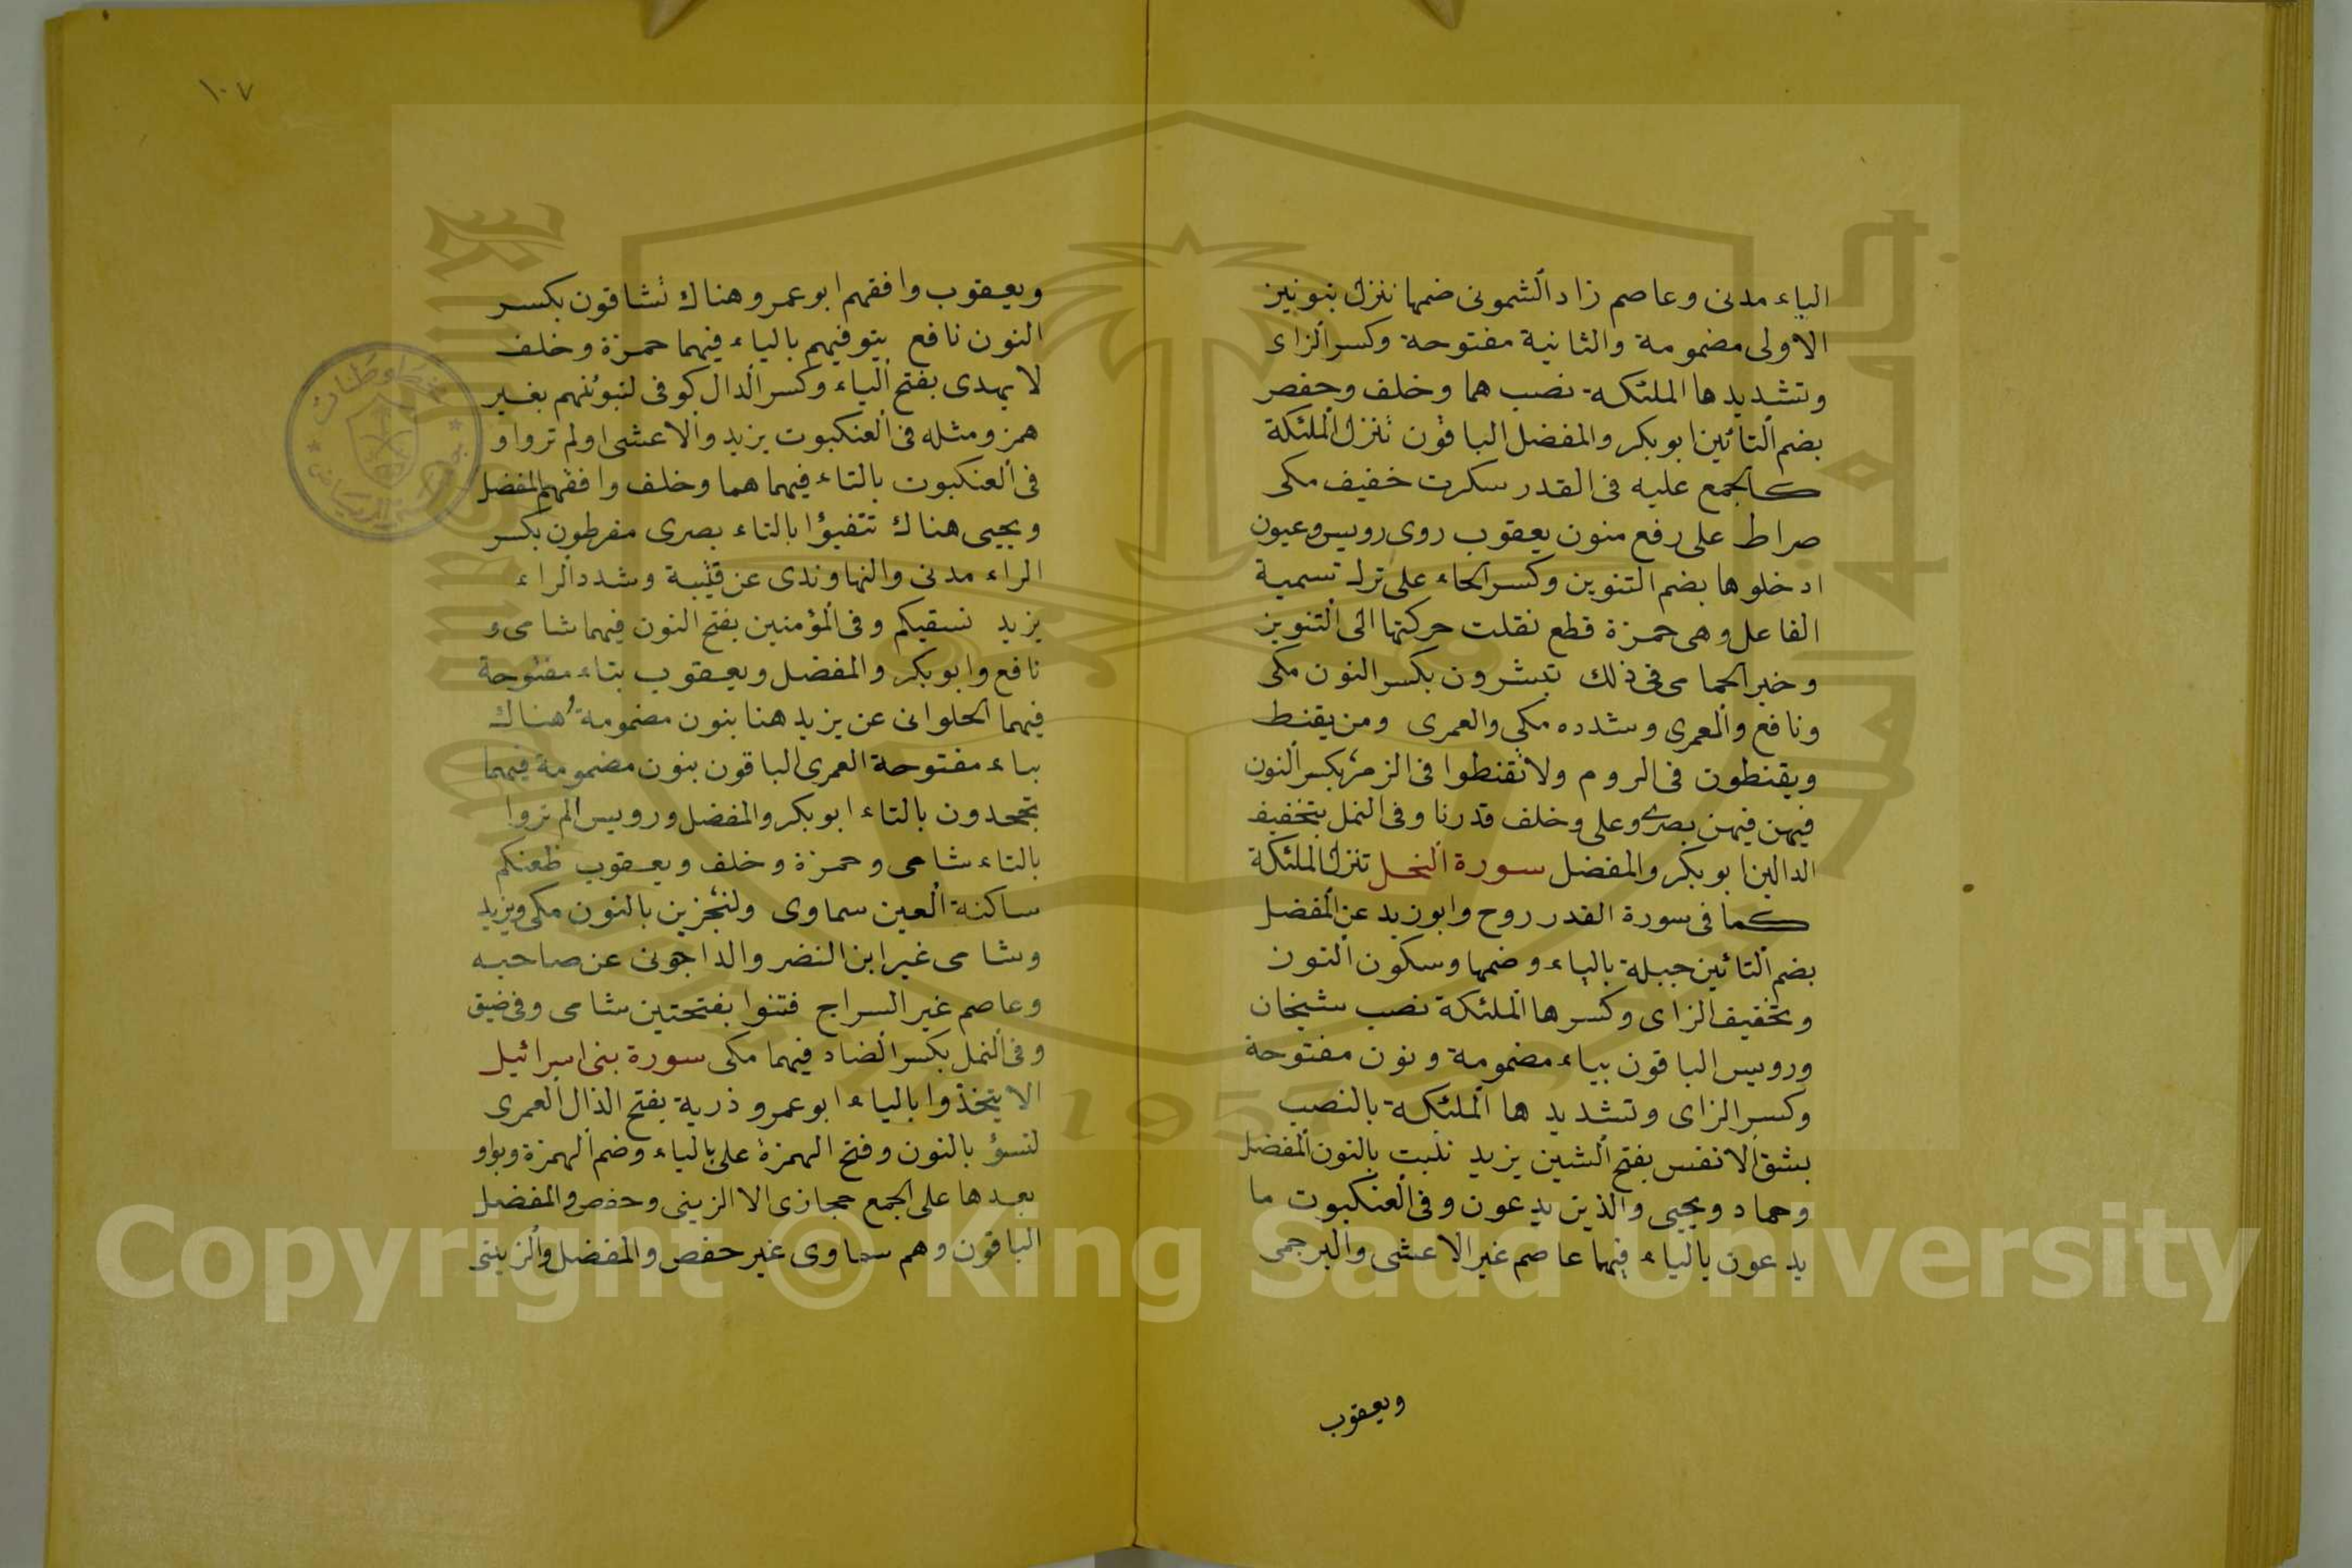 الياء مدنى وعاصم زاد الشمونى ضمها ننزل بنونين
الاولى مضمومة والثانية مفتوحة وكسر الزاى
وتشديدها الملئكة نصب هما وخلف وحفص
بضم التائين ابو بكر والمفضل الباقون تنزل الملئكة
كالجمع عليه فى القدر سكرت خفيف مكى
صراط على رفع منون يعقوب روى رويس وعيون
ادخلوها بضم التنوين وكسر الخاء على ترك تسمية
الفاعل وهى حمزة قطع نقلت حركتها الى التنوين
وخير الحمامى فى ذلك تبشرون بكسر النون مكى
ونافع والمعمرى وشدده مكى والعمرى ومن يقنط
ويقنطون فى الروم ولا تقنطوا فى الزمر بكسر النون
فيهن فيهن بصرى وعلى وخلف قدرنا وفى النمل بتخفيف
الدالين ابو بكر والمفضل سورة النحل تنزل الملئكة
كما فى سورة القدر روح وابو زيد عن المفضل
بضم التائين جبلة بالياء وضمها وسكون النون
وتخفيف الزاى وكسرها الملئكة نصب شيخان
ورويس الباقون بياء مضمومة ونون مفتوحة
وكسر الزاى وتشديدها الملئكة بالنصب
بشق الانفس بفتح الشين يزيد نلبت بالنون المفضل
وحماد ويحيى والذين يدعون وفى العنكبوت ما
يدعون بالياء فيهما عاصم غير الاعشى والبرجمى
ويعقوب
١٠٧
ويعقوب وافقهم ابو عمرو هناك تشاقون بكسر
النون نافع يتوفيهم بالياء فيهما حمزة وخلف
لا يهدى بفتح الياء وكسر الدال كوفى لنبوئنهم بغير
همز ومثله فى العنكبوت يزيد والاعشى اولم تروا و
فى العنكبوت بالتاء فيهما هما وخلف وافقهم المفضل
ويحيى هناك تتفيؤا بالتاء بصرى مفرطون بكسر
الراء مدنى والنهاوندى عن قتيبة وشدد الراء
يزيد نسقيكم وفى المؤمنين بفتح النون فيهما شامى و
نافع وابو بكر والمفضل ويعقوب بتاء مفتوحة
فيهما الحلوانى عن يزيد هنا بنون مضمومة وهناك
بياء مفتوحة العمرى الباقون بنون مضمومة فيهما
تجحدون بالتاء ابو بكر والمفضل ورويس الم تروا
بالتاء شامى وحمزة وخلف ويعقوب ظعنكم
ساكنة العين سماوى ولنجزين بالنون مكى ويزيد
وشامى غير ابن النضر والداجونى عن صاحبه
وعاصم غير السراج فتنوا بفتحتين شامى وفى ضيق
وفى النمل بكسر الضاد فيهما مكى سورة بنى اسرائيل
الا يتخذوا بالياء ابو عمرو ذرية بفتح الذال العمرى
لنسؤ بالنون وفتح الهمزة على بالياء وضم الهمزة وبواو
بعدها على الجمع حجازى الا الزينبى وحفص والمفضل
الباقون وهم سماوى غير حفص والمفضل والزينبى
1957
Copyright © King Saud University